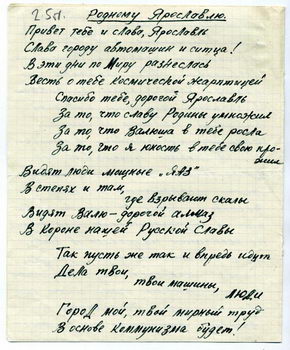 25л.
Родному Ярославлю.
Привет тебе и слава, Ярославль
Слава городу автомашин и ситца!
В эти дни по Миру разнеслась
Весть о тебе Космической жарптицей
Спасибо тебе, дорогой Ярославль
За то, что славу Родины умножил
За то, что Валюша в тебе росла
За то, что я юность в тебе свою про-
жил
Видят люди мощные „ЯАЗ"
В степях и там,
где взрывают скалы
Видят Валю - дорогой алмаз
В Короне нашей Русской Славы
Так пусть же так и впредь идут
Дела твои,
твои машины,
люди
Город мой, твой мирный труд
В основе Коммунизма будет!